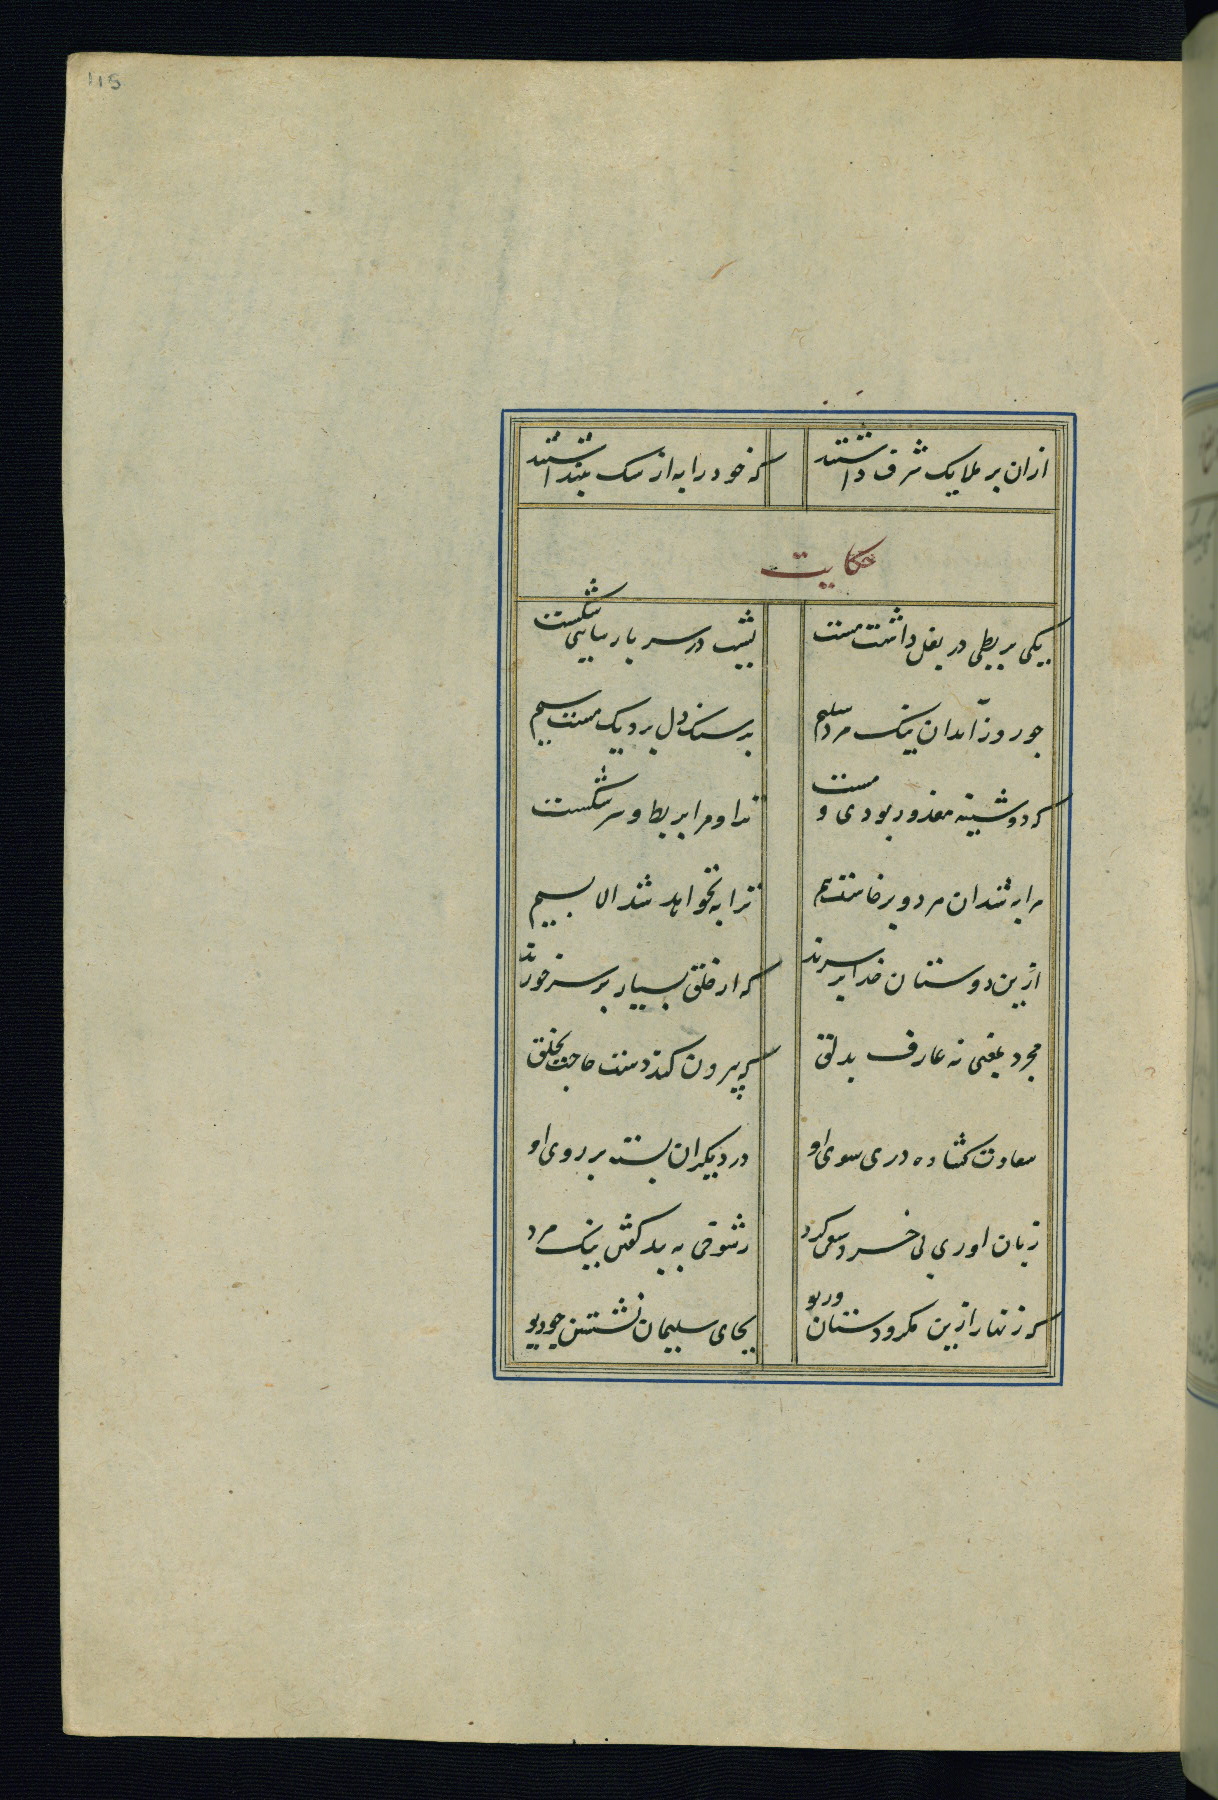 115
ازان بر ملایک شرف داشتند که خود را به از سک نپنداشتند
حکایت
یکی بربطی در بغل داشت مست بشب در سر پارسایی شکست
چو روز آمد ان نیک مرد سلیم بر سنک دل برد یک مشت سیم
که دوشینه معذور بودی و مست ترا و مرا بربط و سر شکست
مرا به شد ان مرد و برخاست بیم ترا به نخواهد شد الا بسیم
ازین دوستان خدا بر سرند که از خلق بسیار بر سر خورند
مجرد بمعنی نه عارف بدلق که بیرون کند دست حاجت بخلق
سعادت کشاده دری سوی او در دیکران بسته بر روی او
زبان اوری بی خرد سعی کرد زشوخی به بد کفتن نیک مرد
که زنهار ازین مکر و دستان و ریو بجای سلیمان نشستن چو دیو